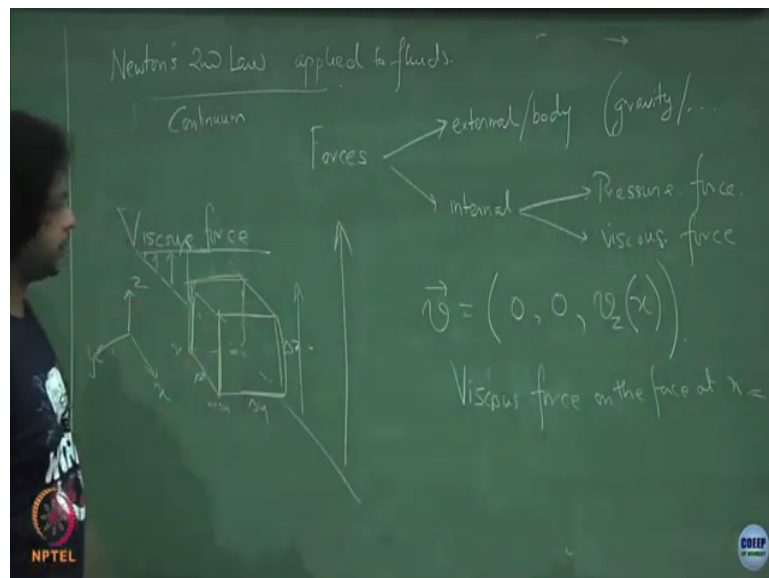 Newton's 2nd Law applied to fluids.
Continuum
Forces
external/body (gravity/...
internal
Pressure force.
viscous force
Viscous force
z
y
x
x
Δz
x+Δx
Δy
v⃗ = (0, 0, v_z(x))
Viscous force on the face at x =
NPTEL
CDEEP
IIT BOMBAY